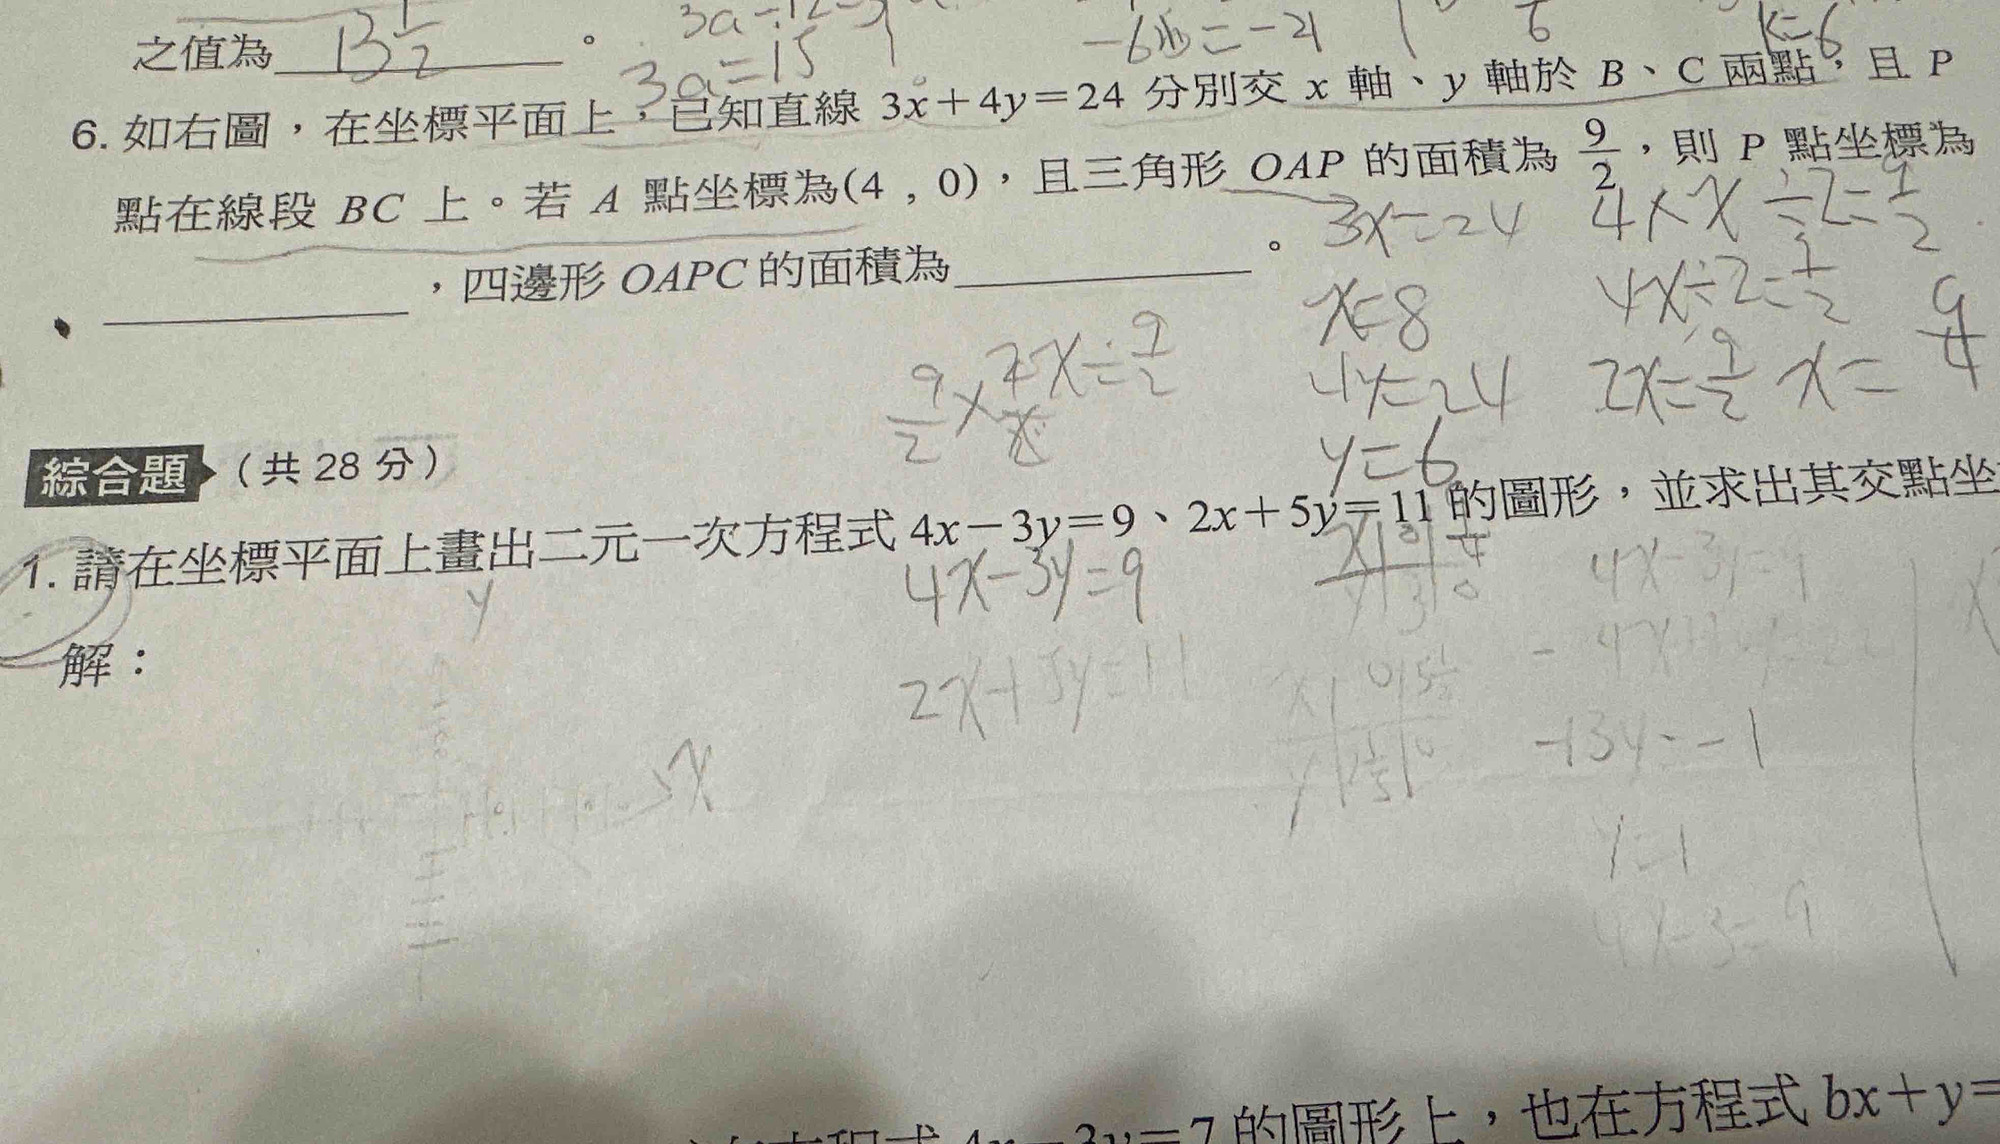 之值為 13 1/2 。
3a=15
-6b=-21
k=6
6. 如右圖，在坐標平面上，已知直線 3x+4y=24 分別交 x 軸、y 軸於 B、C 兩點，且 P
點在線段 BC 上。若 A 點坐標為(4 , 0)，且三角形 OAP 的面積為 9/2，則 P 點坐標為
，四邊形 OAPC 的面積為 。
3x=24
x=8
4y=24
y=6
4×x÷2=9/2
4x÷2=9/2
2x=9/2 x=9/4
綜合題（共 28 分）
1. 請在坐標平面上畫出二元一次方程式 4x－3y＝9、2x＋5y＝11 的圖形，並求出其交點坐
4x-3y=9
解：
y
x
2x+5y=11
4x-3y=9
-13y=-1
y=1
4x-3=9
3y＝7 的圖形上，也在方程式 bx＋y＝